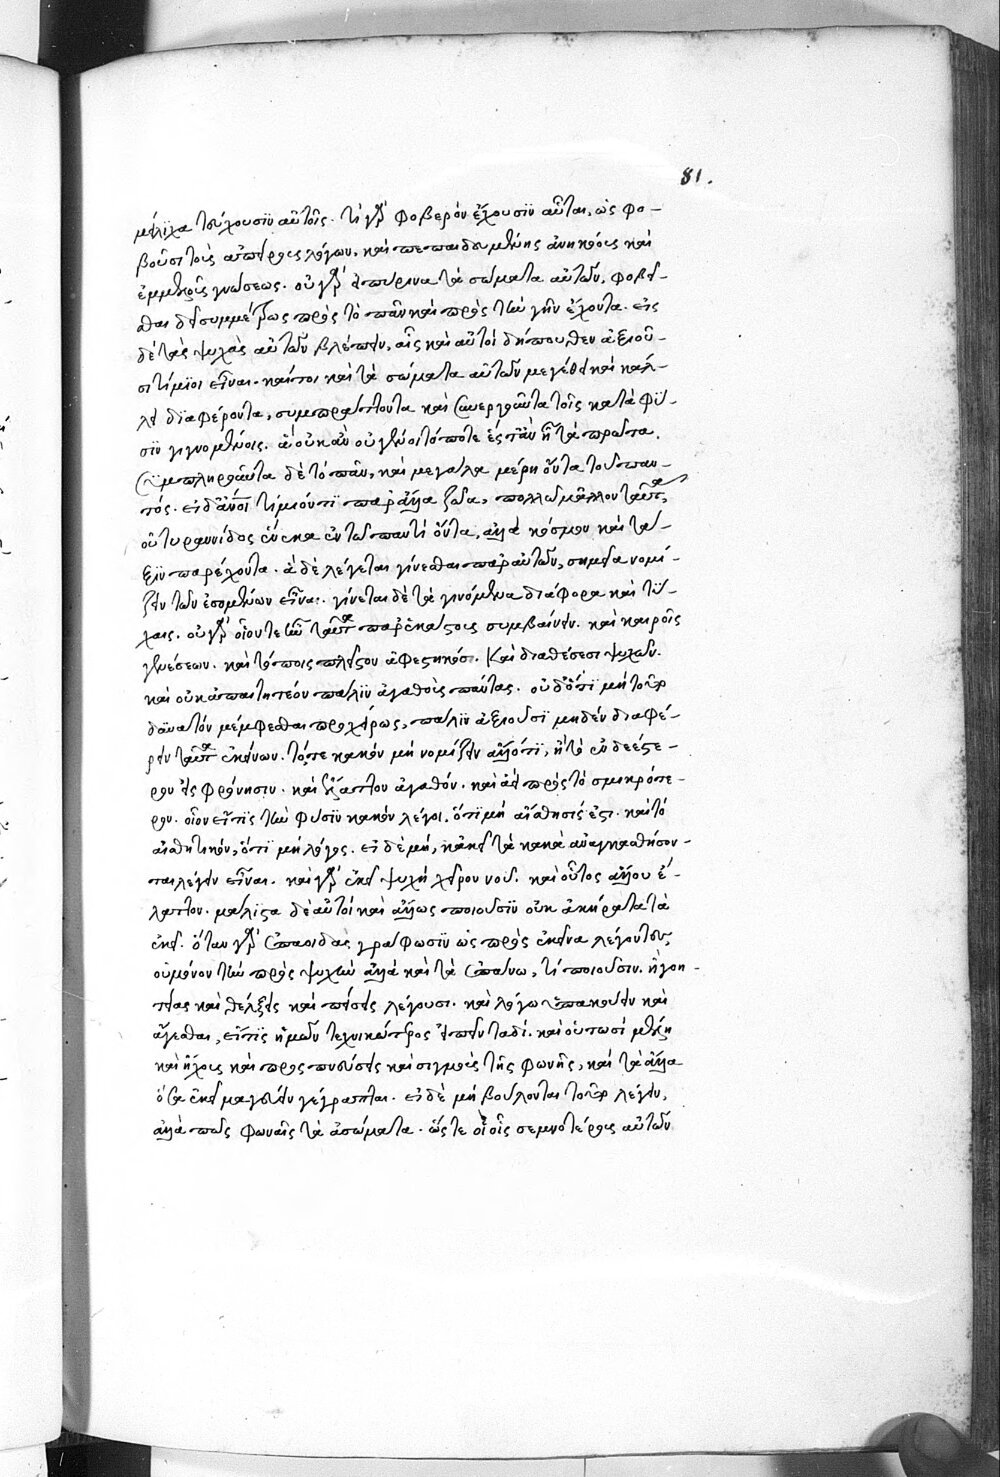 81.
μείλιχα τεύχουσιν αὐτοῖς. τί γὰρ φοβερὸν ἔχουσιν αὗται, ὡς φο-
βοῦσι τοὺς ἀπείρους λόγων, καὶ πεπαιδευμένης ἀνηκόους καὶ
ἐμμελοῦς γνώσεως. οὐ γὰρ εἰ πύρινα τὰ σώματα αὐτῶν, φοβεῖ-
σθαι δεῖ συμμέτρως πρὸς τὸ πᾶν καὶ πρὸς τὴν γῆν ἔχοντα. εἰς
δὲ τὰς ψυχὰς αὐτῶν βλέπειν, αἷς καὶ αὐτοὶ δήπουθεν ἀξιοῦ-
σι τίμιοι εἶναι. καίτοι καὶ τὰ σώματα αὐτῶν μεγέθει καὶ κάλ-
λει διαφέροντα, συμπράττοντα καὶ συνεργοῦντα τοῖς κατὰ φύ-
σιν γιγνομένοις. ἃ οὐκ ἂν οὐ γένοιτό ποτε ἔς τ' ἂν ᾖ τὰ πρῶτα.
συμπληροῦντα δὲ τὸ πᾶν, καὶ μεγάλα μέρη ὄντα τοῦ παν-
τός. εἰ δ' ἄνθρωποι τίμιόν τι παρ' ἄλλα ζῷα, πολλῷ μᾶλλον ταῦτα,
οὐ τυραννίδος ἕνεκα ἐν τῷ παντὶ ὄντα, ἀλλὰ κόσμον καὶ τά-
ξιν παρέχοντα. ἃ δὲ λέγεται γίνεσθαι παρ' αὐτῶν, σημεῖα νομί-
ζειν τῶν ἐσομένων εἶναι. γίνεται δὲ τὰ γινόμενα διάφορα καὶ τύ-
χαις. οὐ γὰρ οἷόν τε ἦν ταῦτα παρ' ἑκάστοις συμβαίνειν. καὶ καιροῖς
γενέσεων. καὶ τόποις πλεῖστον ἀφεστηκόσι. καὶ διαθέσεσι ψυχῶν.
καὶ οὐκ ἀπαιτητέον πάλιν ἀγαθοὺς πάντας. οὐδ' ὅτι μὴ τοῦτο
δυνατὸν μέμφεσθαι προχείρως, πάλιν ἀξιοῦσι μηδὲν διαφέ-
ρειν ταῦτα ἐκείνων. τό τε κακὸν μὴ νομίζειν ἄλλό τι, ἢ τὸ ἐνδεέστε-
ρον εἰς φρόνησιν. καὶ ἔλαττον ἀγαθόν. καὶ ἀεὶ πρὸς τὸ σμικρότε-
ρον. οἷον εἴ τις τὴν φύσιν κακὸν λέγοι, ὅτι μὴ αἴσθησίς ἐστι. καὶ τὸ
αἰσθητικόν, ὅτι μὴ λόγος. εἰ δὲ μή, κἀκεῖ τὰ κακὰ ἀναγκασθήσον-
ται λέγειν εἶναι. καὶ γὰρ ἐκεῖ ψυχὴ χεῖρον νοῦ. καὶ οὗτος ἄλλου ἔ-
λαττον. μάλιστα δὲ αὐτοὶ καὶ ἄλλως ποιοῦσιν οὐκ ἀκήρατα τὰ
ἐκεῖ. ὅταν γὰρ ἐπαοιδὰς γράφωσιν ὡς πρὸς ἐκεῖνα λέγοντες,
οὐ μόνον τὴν πρὸς ψυχὴν ἀλλὰ καὶ τὰ ἐπάνω, τί ποιοῦσιν. ἢ γοη-
τείας καὶ θέλξεις καὶ πείσεις λέγουσι. καὶ λόγῳ ὑπακούειν καὶ
ἄγεσθαι, εἴ τις ἡμῶν τεχνικώτερος εἰπεῖν ταδί. καὶ οὑτωσὶ μέλη
καὶ ἤχους καὶ προσπνεύσεις καὶ σιγμοὺς τῆς φωνῆς, καὶ τὰ ἄλλα
ὅσα ἐκεῖ μαγεύειν γέγραπται. εἰ δὲ μὴ βούλονται τοῦτο λέγειν,
ἀλλὰ πῶς φωναῖς τὰ ἀσώματα. ὥστε οἷ οἷς σεμνοτέρους αὐτῶν